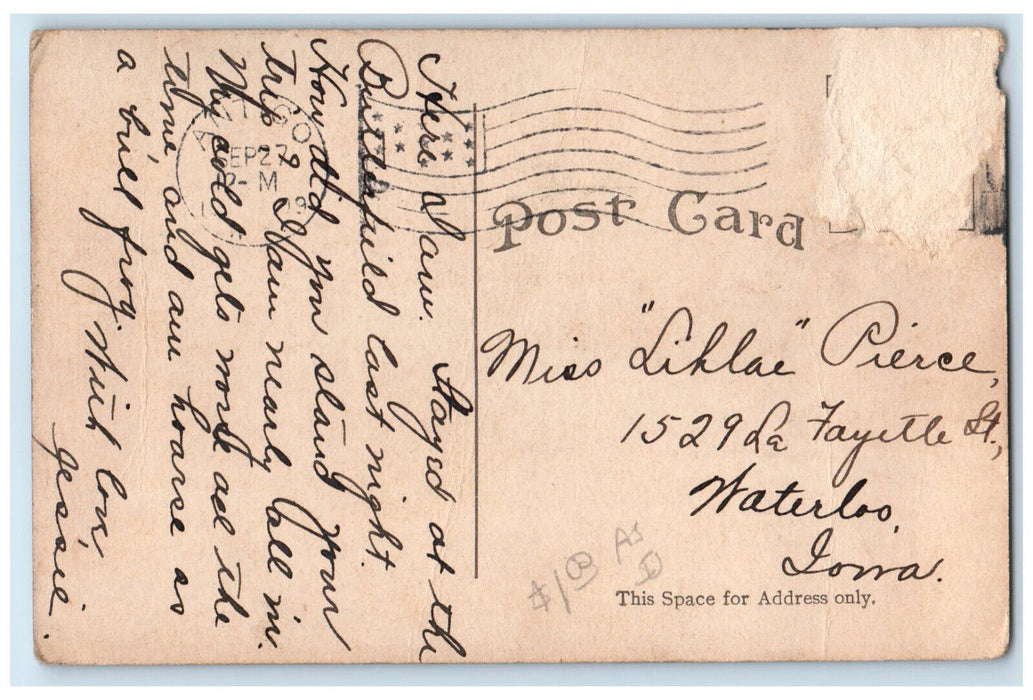 Here I am. Stayed at the
Butterfield last night.
How did you stand your
trip? I am nearly all in.
My cold gets worse all the
time and am hoarse as
a bull frog. With love,
Jessie.
ANTIGO
SEP 27
2 - M
Post Card
Miss "Liklae" Pierce,
1529 La Fayette St.,
Waterloo,
Iowa.
$1.00 As
This Space for Address only.